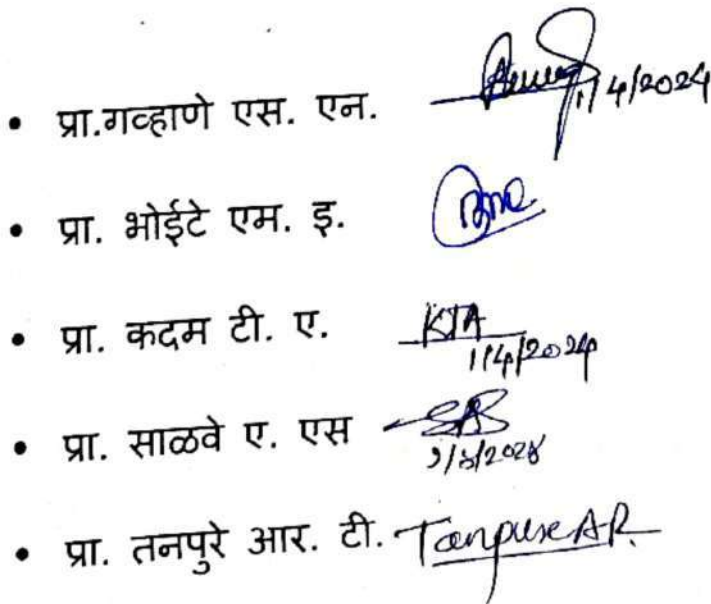 • प्रा.गव्हाणे एस. एन. 1/4/2024
• प्रा. भोईटे एम. इ.
• प्रा. कदम टी. ए. KTA
1/4/2024
• प्रा. साळवे ए. एस
१/४/२०२४
• प्रा. तनपुरे आर. टी. Tanpure A.R.